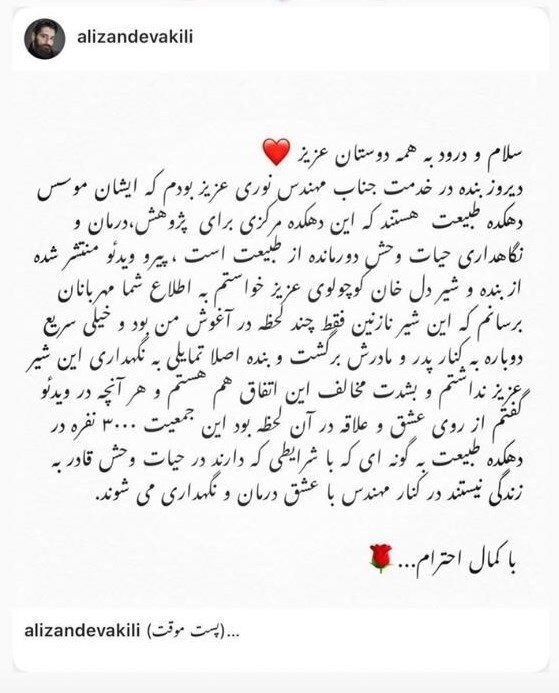 alizandevakili
سلام و درود به همه دوستان عزیز ❤️
دیروز بنده در خدمت جناب مهندس نوری عزیز بودم که ایشان موسس
دهکده طبیعت هستند که این دهکده مرکزی برای پژوهش،درمان و
نگاهداری حیات وحش دورمانده از طبیعت است ، پیرو ویدئو منتشر شده
از بنده و شیر دل خان کوچولوی عزیز خواستم به اطلاع شما مهربانان
برسانم که این شیر نازنین فقط چند لحظه در آغوش من بود و خیلی سریع
دوباره به کنار پدر و مادرش برگشت و بنده اصلا تمایلی به نگهداری این شیر
عزیز نداشتم و بشدت مخالف این اتفاق هم هستم و هر آنچه در ویدئو
گفتم از روی عشق و علاقه در آن لحظه بود این جمعیت ۳۰۰۰ نفره در
دهکده طبیعت به گونه ای که با شرایطی که دارند در حیات وحش قادر به
زندگی نیستند در کنار مهندس با عشق درمان و نگهداری می شوند.
با کمال احترام...🌹
alizandevakili (پست موقت)...